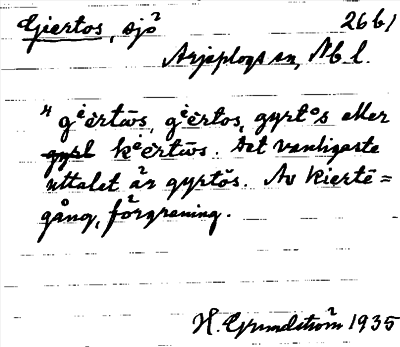 Giertos, sjö 26 b 1
Arjeplogs sn, Nb. l.
"gⁱèrtω̄s, gⁱèrtos, gyrtᵒs eller
gyrt kᵉèrtω̄s. Det vanligaste
uttalet är gyrtŏs. Av kiertē=
gång, förgrening.
H. Grundström 1935